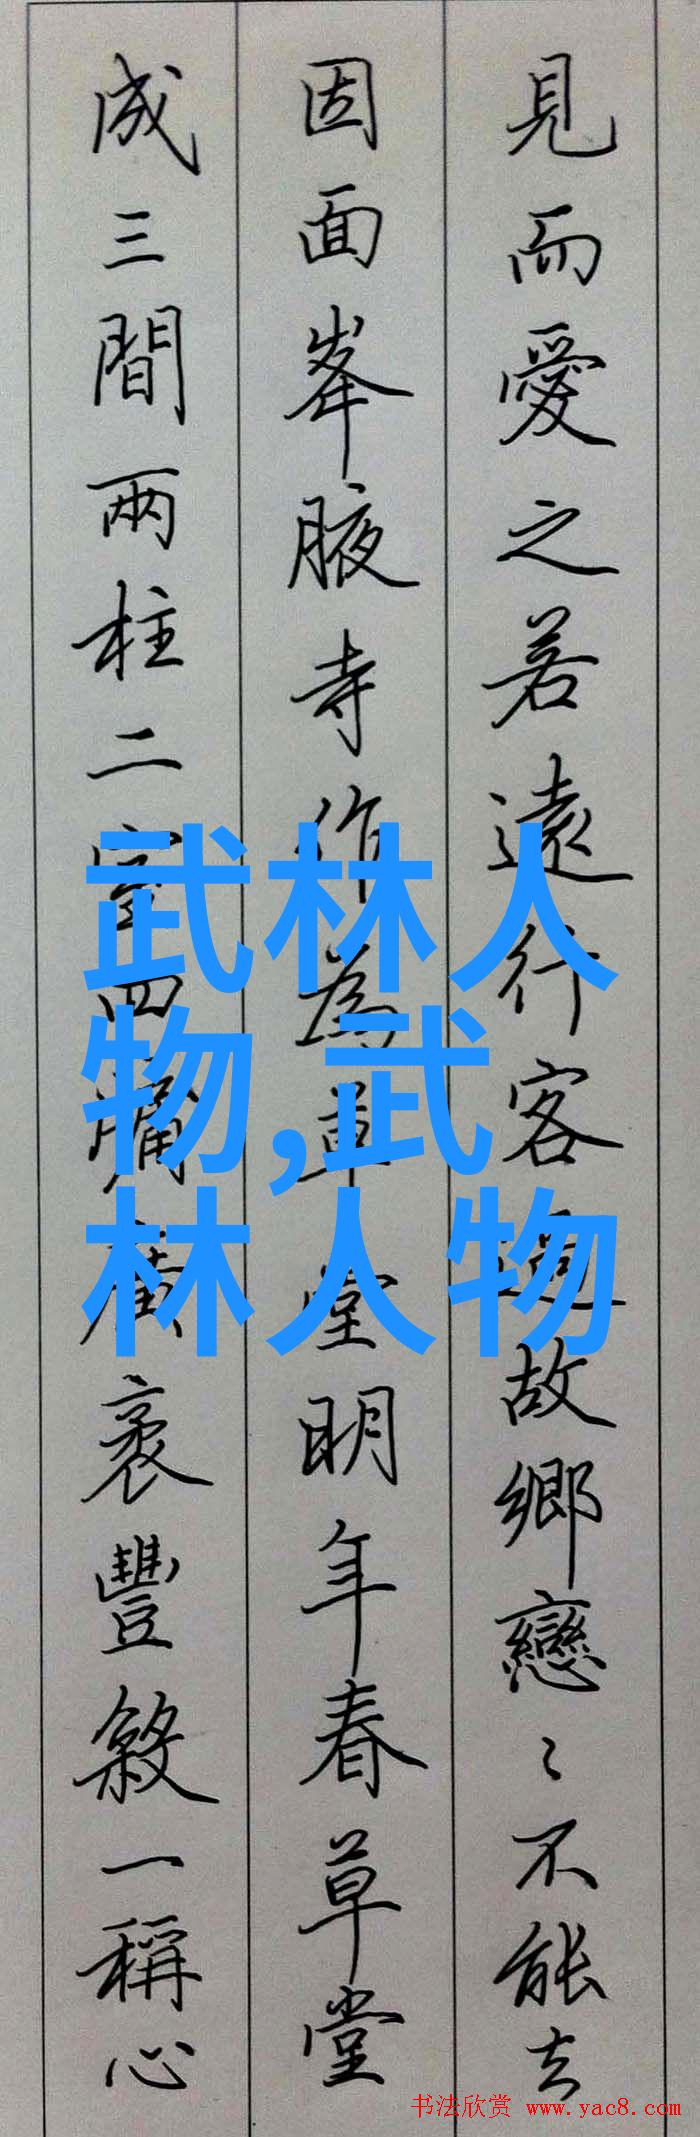 見而愛之若遠行客過故鄉戀〻不能去
因面峯腋寺作為草堂明年春草堂
成三間兩柱二室四牖廣袤豐殺一稱心
武林人
物,武
林人物
书法欣赏 www.yac8.com